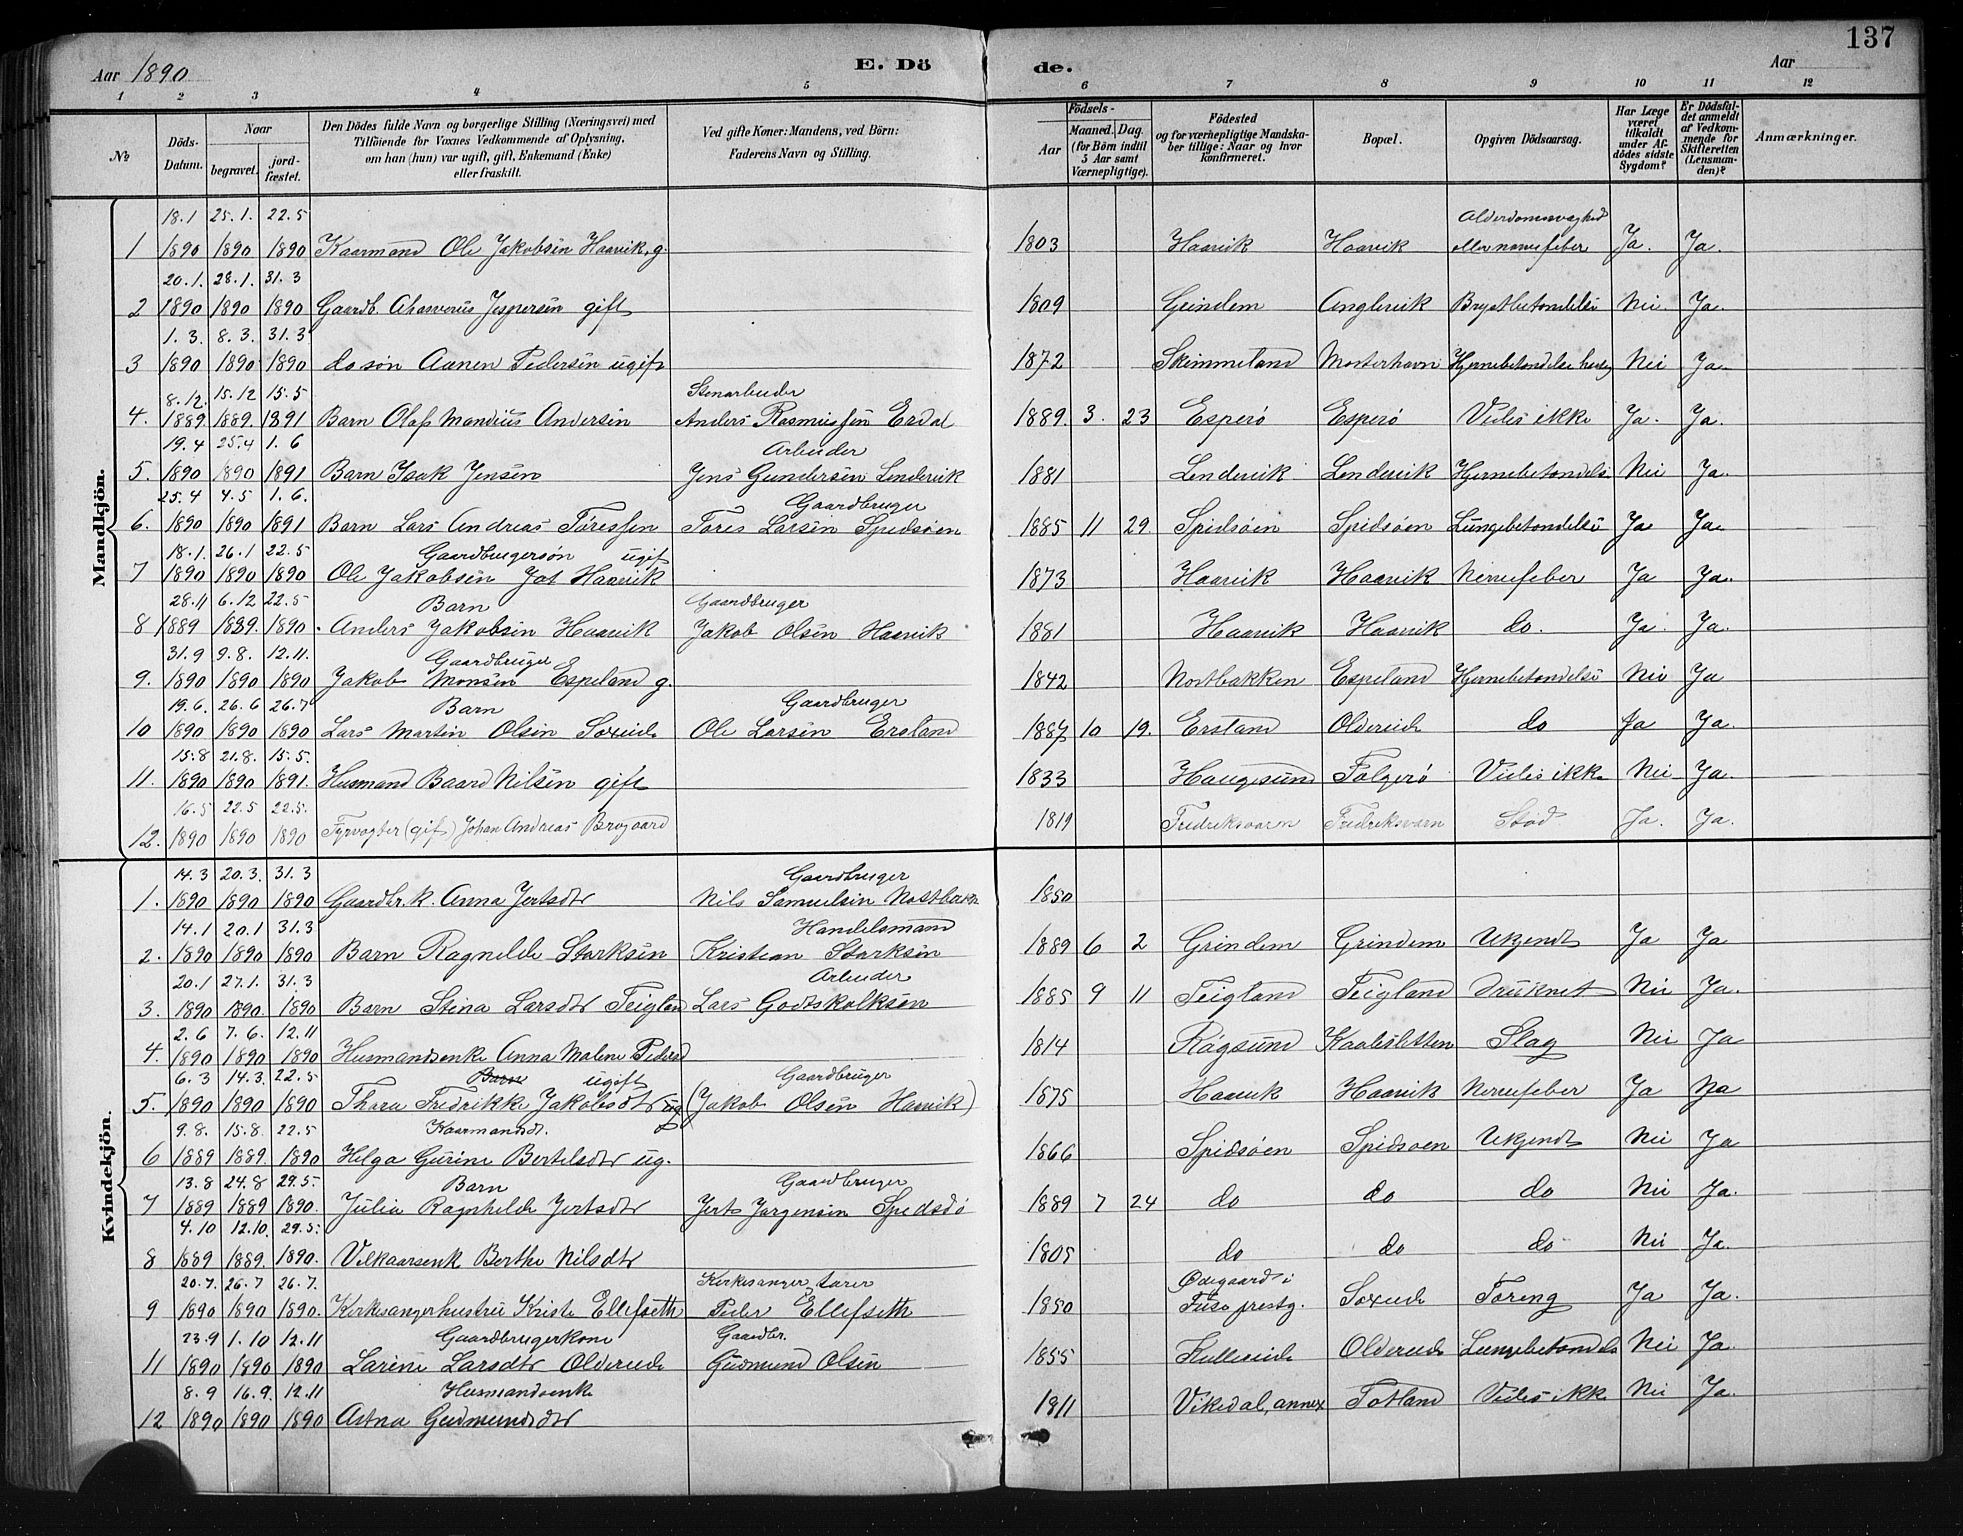 137
Aar 1890
E. Dö
de.
Aar
1 2 3 4 5 6 7 8 9 10 11 12
№
Döds-Datum.
Naar
begravet.
jord-fæstet.
Den Dödes fulde Navn og borgerlige Stilling (Næringsvei) med
Tilföiende for Voxnes Vedkommende af Oplysning,
om han (hun) var ugift, gift, Enkemand (Enke)
eller fraskilt.
Ved gifte Koner: Mandens, ved Börn:
Faderens Navn og Stilling.
Födsels-
Aar
Maaned. Dag.
(for Börn indtil
5 Aar samt
Værnepligtige).
Födested
og for værnepligtige Mandska-
ber tillige: Naar og hvor
konfirmeret.
Bopæl.
Opgiven Dödsaarsag.
Har Læge
været
tilkaldt
under Af-
dödes sidste
Sygdom?
Er Dödsfal-
det anmeldt
af Vedkom-
mende for
Skifteretten
(Lensman-
den)?
Anmærkninger.
Mandkjön.
18.1 25.1. 22.5 Alderdomssvaghed
1 1890 1890 1890 Kaarmand Ole Jakobsen Haavik, g. 1803 Haavik Haavik eller nervefeber Ja. Ja.
20.1. 28.1. 31.3
2 1890 1890 1890 Gaardb. Ahasverus Jespersen gift 1809 Grindem Anglevik Brystbetendelse Nei. Ja.
1.3. 8.3. 31.3
3 1890 1890 1890 do søn Aanen Pedersen ugift 1872 Skimmeland Mosterhavn Hjernebetendelse Nei Ja.
8.12. 15.12 15.5 Stenarbeider
4. 1889. 1889. 1891 Barn Olaf Mandius Andersen Anders Rasmussen Erdal 1889. 3. 23 Esperø Esperø Vides ikke Ja. Ja.
19.4 25.4 1.6 Arbeider
5. 1890 1890 1891 Barn Isak Jensen Jens Gundersen Lendevik 1881 Lendevik Lendevik Hjernebetendelse Nei Ja.
25.4 4.5 1.6. Gaardbruger
6. 1890 1890 1891 Barn Lars Andreas Tøressen Tøres Larsen Spidsøen 1885 11 29. Spidsøen Spidsøen Lungebetendelse Ja Ja.
18.1. 26.1 22.5 Gaardbrugersøn ugift
7 1890 1890 1890 Ole Jakobsen Haavik 1873 Haavik Haavik Nervefeber Ja Ja.
28.11 6.12 22.5 Barn Gaardbruger
8 1889 1889. 1890. Anders Jakobsen Haavik Jakob Olsen Haavik 1881 Haavik Haavik do. Ja. Ja.
31.9 9.8. 12.11. Gaardbruger
9. 1890 1890 1890 Jakob Monsen Espeland g. 1842 Nortbakken Espeland Hjernebetendelse Nei Ja
19.6. 26.6 26.7 Barn Gaardbruger
10 1890 1890 1890 Lars Martin Olsen Soxeide Ole Larsen Ersland 1887 10 19. Ersland Oldereide do Ja Ja.
15.8 21.8. 15.5.
11. 1890 1890 1891. Husmand Baard Nilsen gift 1833 Haugesund Folgerø Vides ikke Nei Ja.
16.5 22.5 22.5.
12. 1890 1890 1890 Fyrvogter (gift) Johan Andreas Brogaard 1819 Fredriksvarn Fredriksvarn Stød Ja. Ja.
Kvindekjön.
14.3 20.3. 31.3 Gaardbruger
1. 1890 1890 1890 Gaardbr.k. Anna Jertsdtr Nils Samuelsen 1850
14.1 20.1 31.3 Handelsmand
2. 1890 1890 1890 Barn Ragnelde Storksen Kristean Storksen 1889 6 2 Grindem Grindem Ukjendt Ja Ja
20.1 27.1. 31.3 Arbeider
3. 1890 1890. 1890 Barn Stina Larsdtr Teigland Lars Godtskolksen 1885 9 11 Teigland Teigland Druknet Nei Ja.
2.6 7.6. 12.11
4. 1890 1890 1890 Husmandsenke Anna Malene Pedersd 1814 Røgsund Kaalesletten Slag Nei Ja
6.3 14.3. 22.5 Barn ugift Gaardbruger
5. 1890 1890 1890 Thora Fredrikke Jakobsdtr ug (Jakob Olsen Haavik) 1875 Haavik Haavik Nervefeber Ja Na
9.8. 15.8. 22.5 Kaarmandsdt.
6 1889 1889 1890 Helga Gurine Bertelsdtr ug. 1866 Spidsøen Spidsøen Ukjendt Nei Ja
13.8 24.8 29.5. Barn Gaardbruger
7 1889 1889 1890. Julia Ragnhelde Jertsdtr Jerts Jørgensen Spedsø 1889 7 24 do do do Nei Ja.
4.10 12.10. 29.5.
8 1889 1889. 1890. Vilkaarsenk Berthe Nilsdtr 1805 do do do Nei Ja.
20.7. 26.7 26.7. Kirkesanger, Lærer Ødegaard i
9 1890 1890 1890. Kirkesangerhustru Kriste Ellefseth Peder Ellefseth 1850 Fuse prestg. Soxeide Tøreng Ja Ja.
23.9 1.10 12.11 Gaardbrugerkone Gaardbr.
11 1890 1890 1890 Larine Larsdtr Oldereide Gudmund Olsen 1855 Kulleseide Oldereide Lungebetendels Nei Ja.
8.9 16.9. 12.11 Husmandsenke
12 1890 1890 1890 Astna Gudmundsdtr 1811 Vikedal, annex Totland Vides ikke Nei Ja.